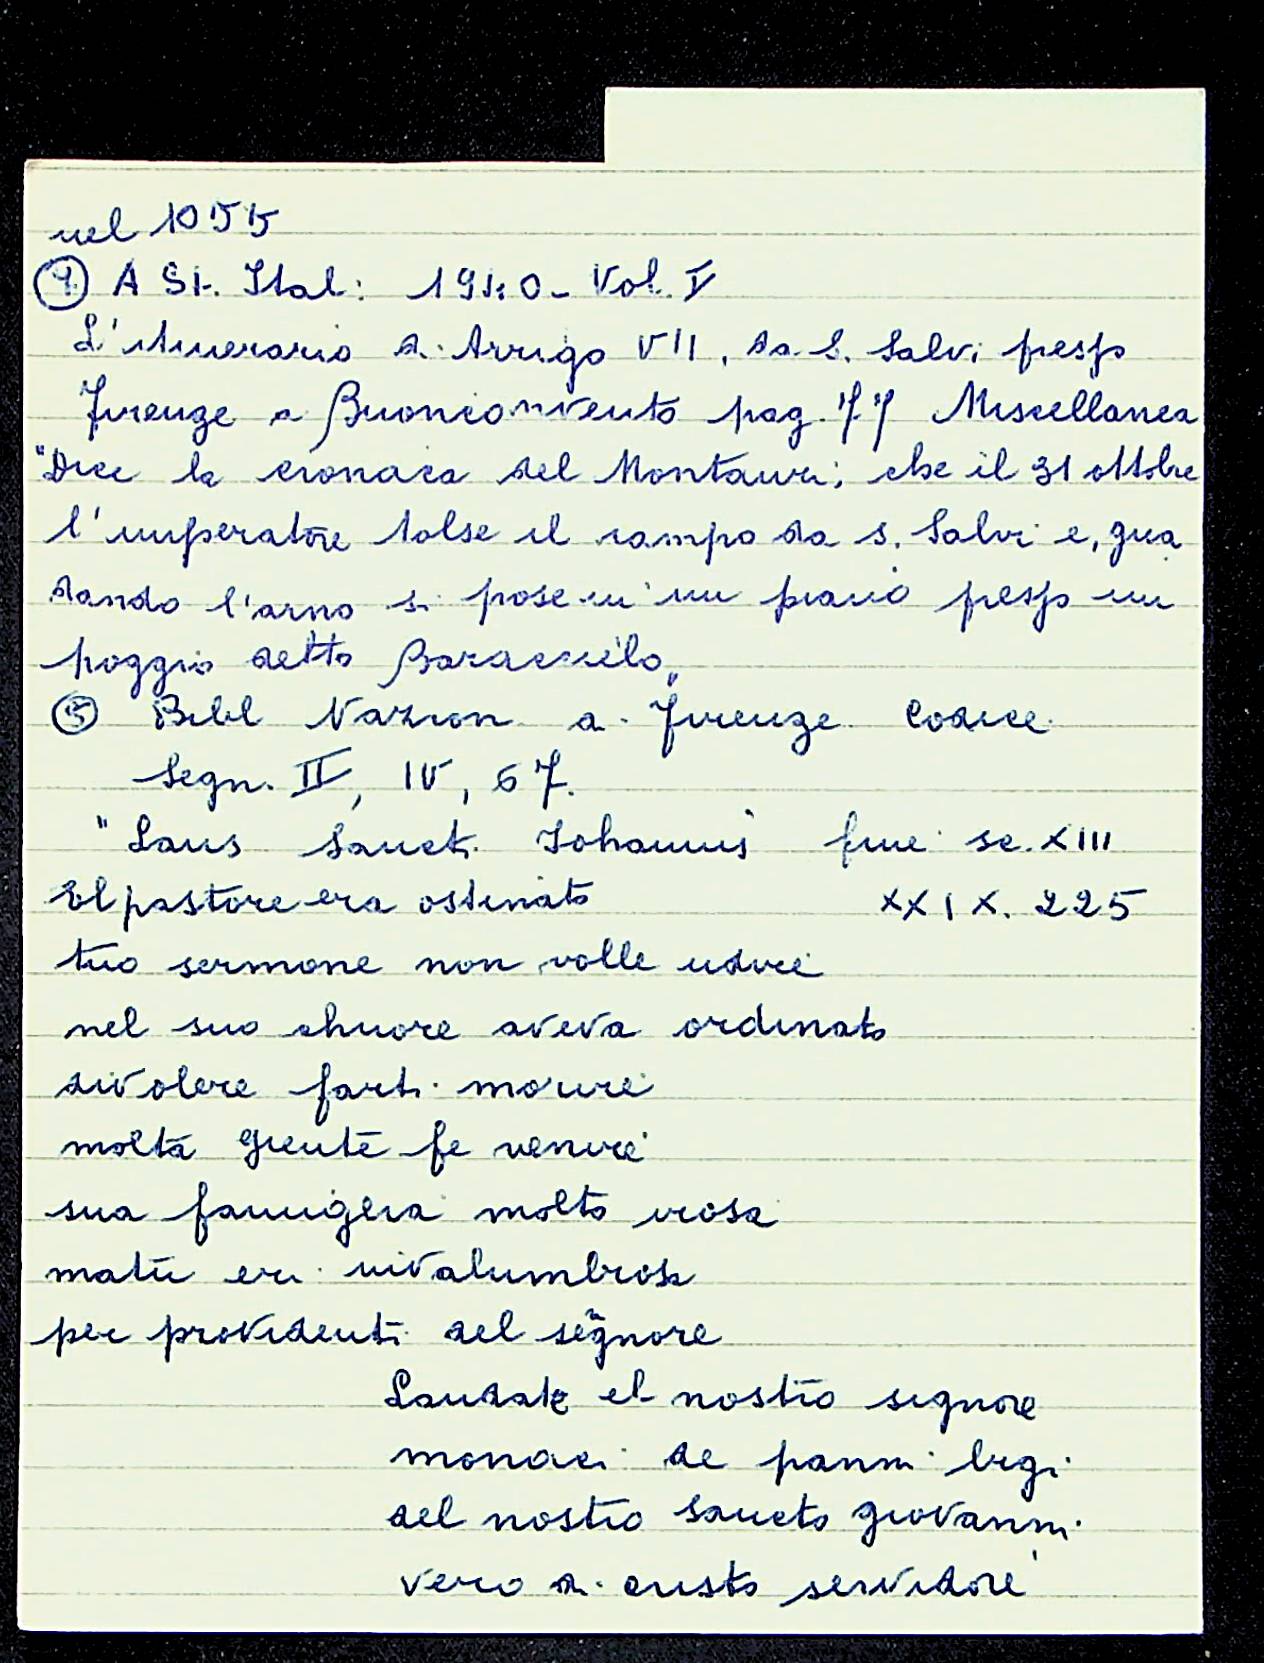 nel 1055
④ A St. Ital: 1940 - Vol. V
L'itinerario di Arrigo VII, da S. Salvi presso
Firenze a Buonconvento pag. 77 Miscellanea
"Dice la cronaca del Montauri, che il 31 ottobre
l'imperatore tolse il campo da s. Salvi e, gua
dando l'arno si pose in un piano presso un
poggio detto Baraccuilo"
⑤ Bibl Nazion di Firenze Codice
Segn. II, IV, 67.
"Laus Sancti Iohannis fine sec. XIII
El pastore era ostinato XXIX. 225
tuo sermone non volle udire
nel suo chuore aveva ordinato
divolere farti morire
molta giente fe venire
sua famiglia molto irosa
matu eri nivalumbrosa
per providenti del segnore
Laudate el nostro signore
monaci de panni bigi
del nostro sancto giovanni
vero di cristo servidore